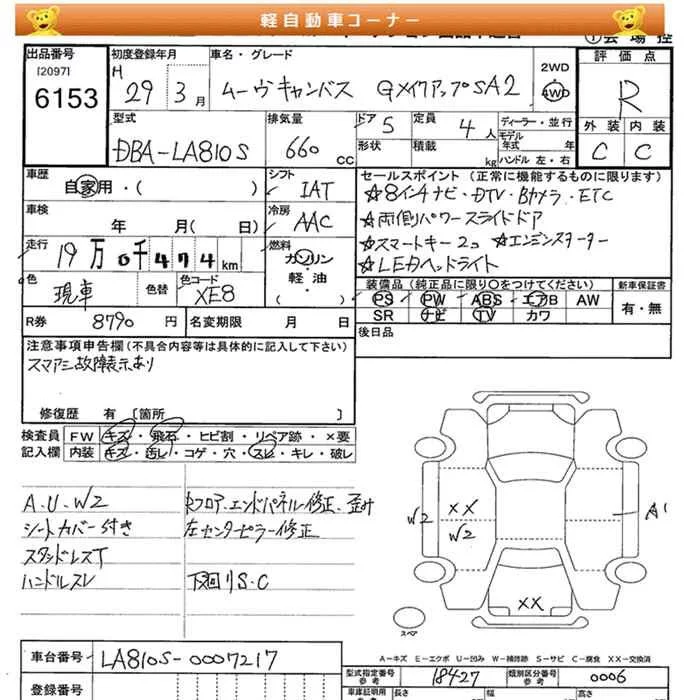 軽自動車コーナー
①会場控
出品番号
[2097]
6153
初度登録年月
H 29年3月
車名・グレード
ムーヴキャンバス GメイクアップSA2
2WD
4WD
評価点
R
外装 内装
C C
型式
DBA-LA810S
排気量
660 CC
ドア 5
定員 4人
形状
積載 kg
ディーラー・並行
モデル年式 年式
ハンドル 左・右
車歴
自家用・( )
シフト
IAT
セールスポイント(正常に機能するものに限ります)
☆8インチナビ・DTV・Bカメラ・ETC
☆両側パワースライドドア
☆スマートキー2コ ☆エンジンスターター
☆LEDヘッドライト
車検
年 月( 日)
冷房
AAC
走行
19万0千474km
燃料
ガソリン
軽・油
( )
色
現車
色替
色コード
XE8
装備品(純正品に限り〇をつけてください)
PS PW ABS エアB AW
SR ナビ TV カワ
新車保証書
有・無
R券 8790円
名変期限 月 日
後日品
注意事項申告欄(不具合内容等は具体的に記入して下さい)
スマアシ故障表示あり
修復歴 有〔箇所 〕
検査員
記入欄
FW キズ・飛石・ヒビ割・リペア跡・×要
内装 キズ・汚し・コゲ・穴・スレ・キレ・破レ
A.U.W2
シートカバー付き
スタッドレスT
ハンドルスレ
左センターピラー修正
下廻りS.C
W2
XX
W2
A1
XX
スペア
A-キズ E-エクボ U-凹み W-補修跡 S-サビ C-腐食 XX-交換済
車台番号
LA810S-0007217
登録番号
型式指定番号
参考
18427
類別区分番号
参考
0006
車庫証明用
長さ
幅
高さ